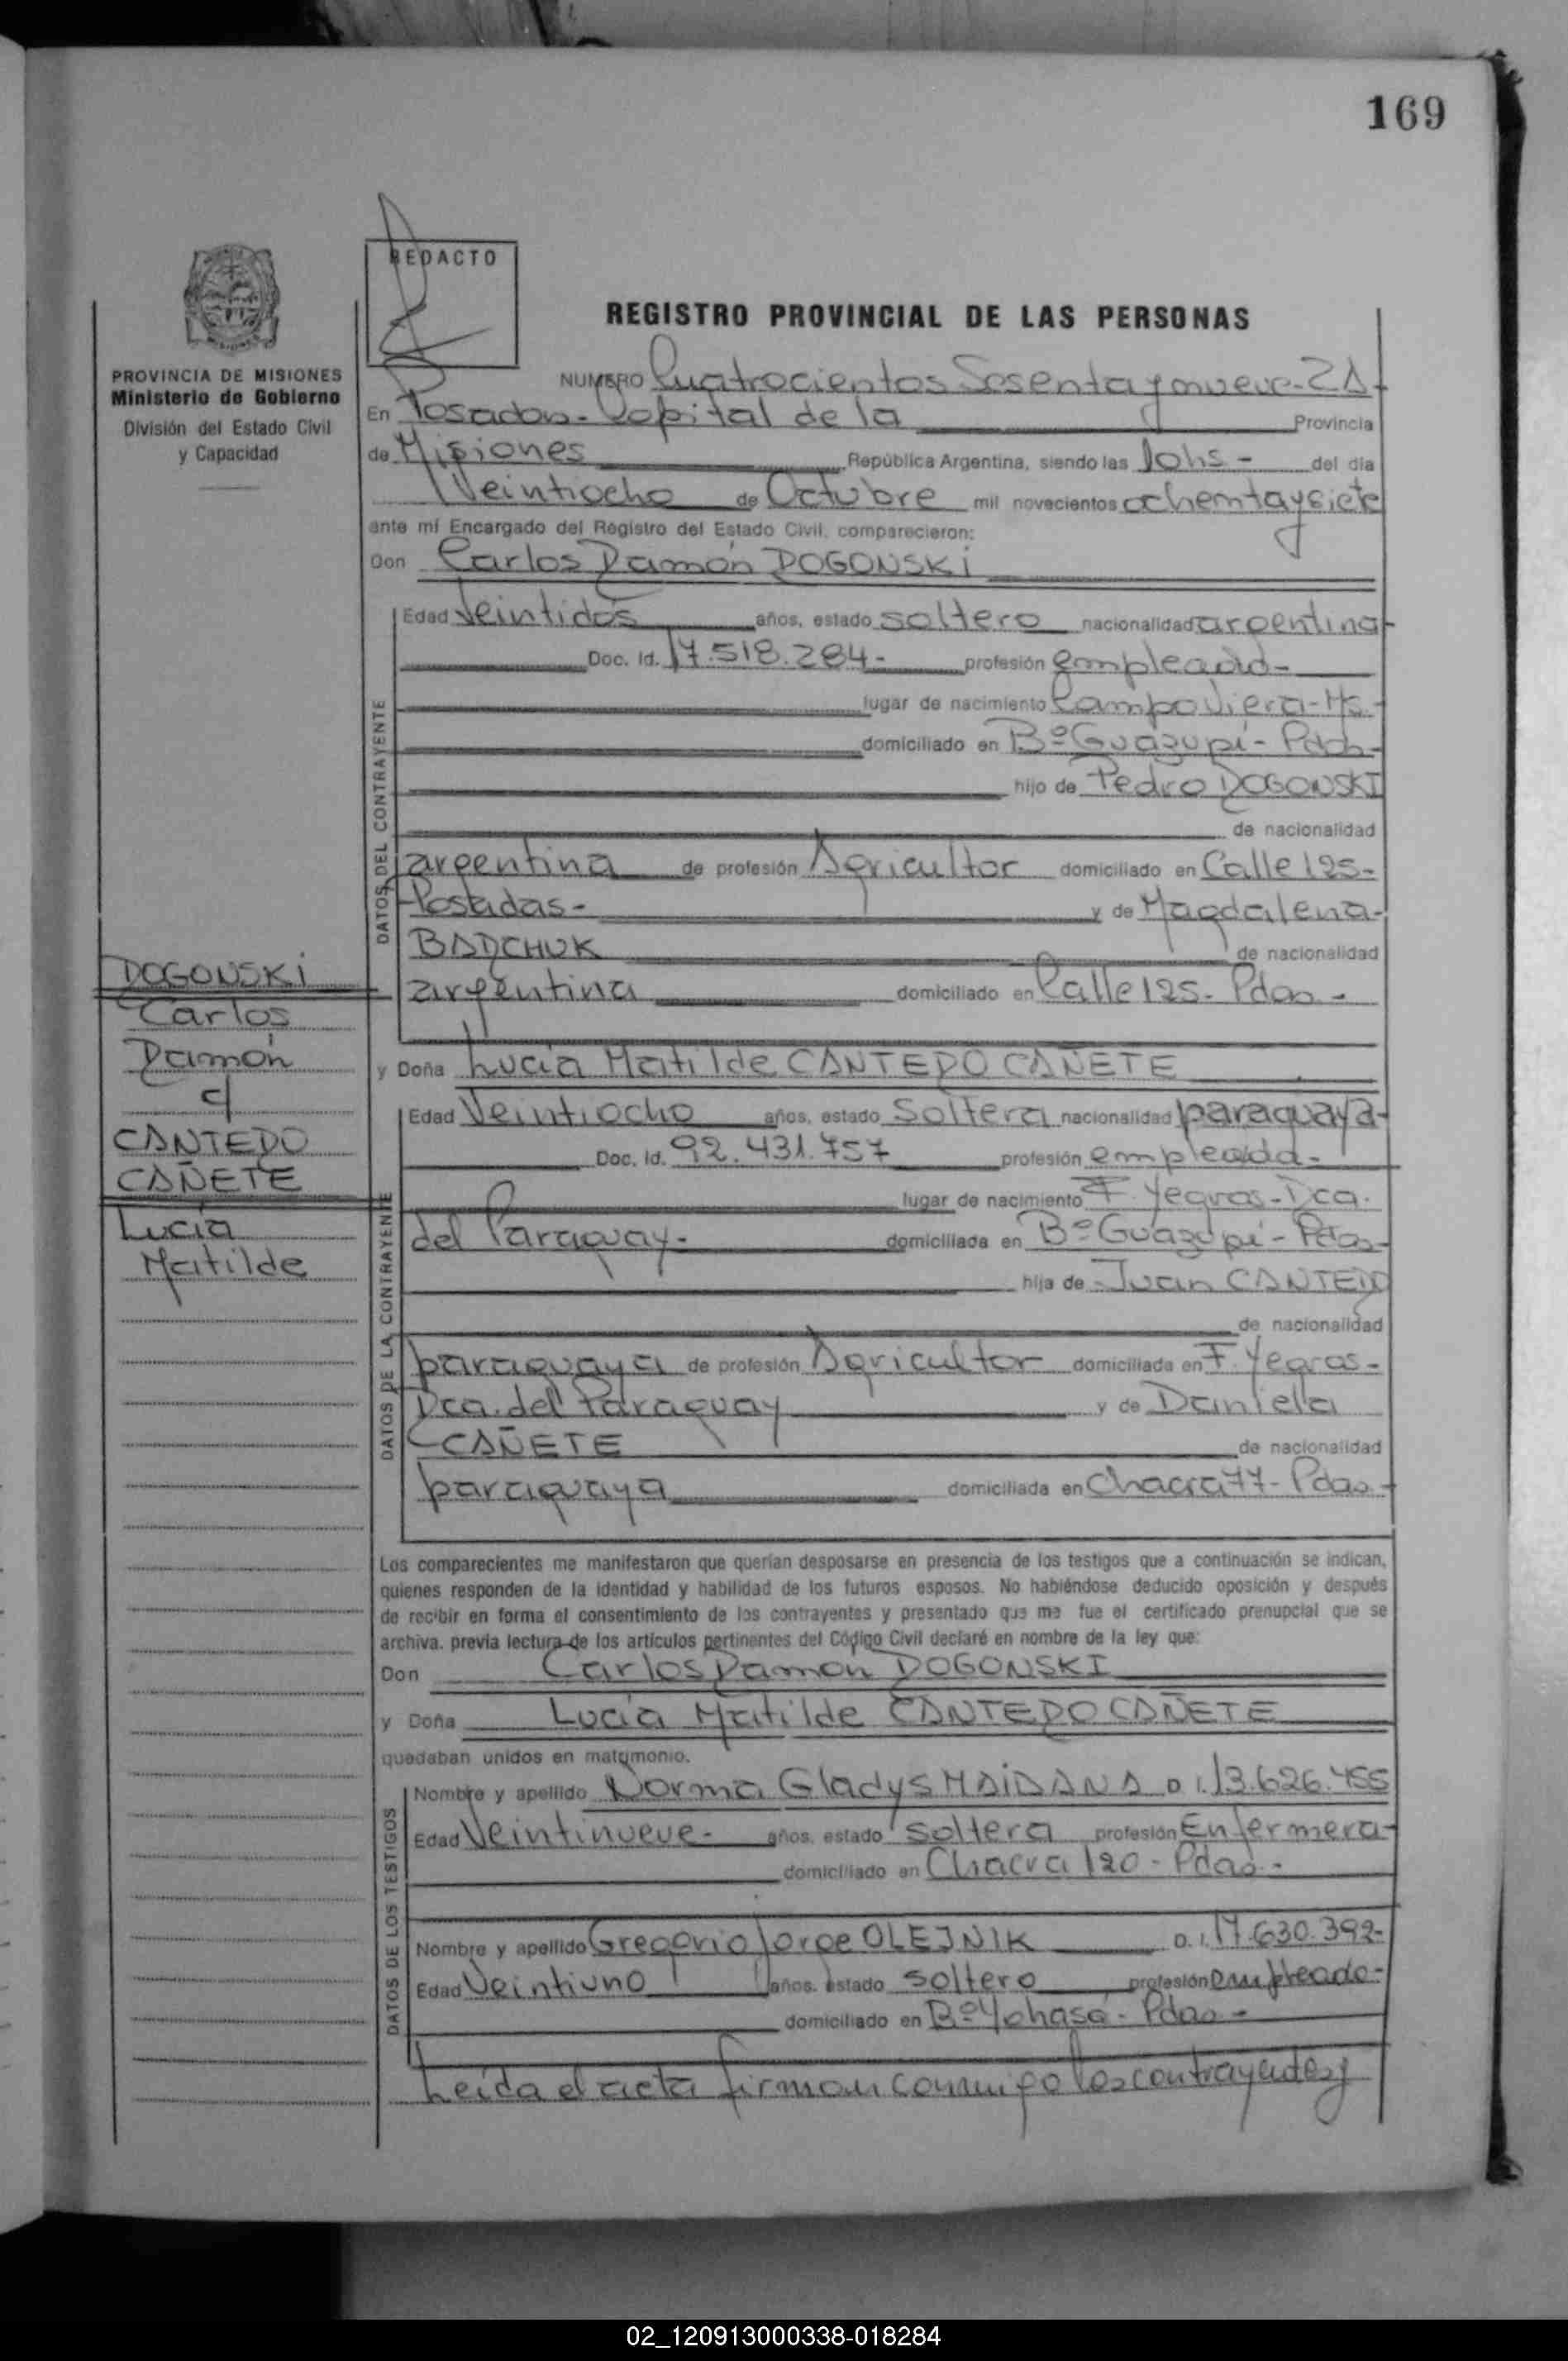 169
REDACTO
REGISTRO PROVINCIAL DE LAS PERSONAS
PROVINCIA DE MISIONES
Ministerio de Gobierno
División del Estado Civil
y Capacidad
NUMERO Cuatrocientos Sesenta y nueve-2A-
En Posadas-Capital de la Provincia
de Misiones República Argentina, siendo las 10hs- del día
Veintiocho de Octubre mil novecientos ochentaysiete
ante mí Encargado del Registro del Estado Civil, comparecieron:
Don Carlos Ramón DOGONSKI
DATOS DEL CONTRAYENTE
Edad Veintidós años, estado soltero nacionalidad argentina-
Doc. Id. 17.518.284- profesión empleado-
lugar de nacimiento Campo Viera-Ms.-
domiciliado en Bº Guazupí-Pdas-
hijo de Pedro DOGONSKI
de nacionalidad
argentina de profesión Agricultor domiciliado en Calle 125-
Posadas- y de Magdalena-
BARCHUK de nacionalidad
argentina domiciliado en Calle 125-Pdas-
DOGONSKI
Carlos
Ramón
c/
CANTERO
CAÑETE
Lucía
Matilde
y Doña Lucía Matilde CANTERO CAÑETE
DATOS DE LA CONTRAYENTE
Edad Veintiocho años, estado Soltera nacionalidad paraguaya-
Doc. Id. 92.431.757 profesión empleada-
lugar de nacimiento F. Yegros-Rca.
del Paraguay- domiciliada en Bº Guazupí-Pdas-
hija de Juan CANTERO
de nacionalidad
paraguaya de profesión Agricultor domiciliada en F. Yegros-
Rca. del Paraguay y de Daniela
CAÑETE de nacionalidad
paraguaya domiciliada en Chacra 77-Pdas-
Los comparecientes me manifestaron que querían desposarse en presencia de los testigos que a continuación se indican,
quienes responden de la identidad y habilidad de los futuros esposos. No habiéndose deducido oposición y después
de recibir en forma el consentimiento de los contrayentes y presentado que me fue el certificado prenupcial que se
archiva. previa lectura de los artículos pertinentes del Código Civil declaré en nombre de la ley que:
Don Carlos Ramón DOGONSKI
y Doña Lucía Matilde CANTERO CAÑETE
quedaban unidos en matrimonio.
DATOS DE LOS TESTIGOS
Nombre y apellido Norma Gladys MAIDANA D.I. 13.626.455
Edad Veintinueve- años. estado soltera profesión Enfermera-
domiciliado en Chacra 120-Pdas-
Nombre y apellido Gregorio Jorge OLEJNIK D.I. 17.630.392-
Edad Veintiuno años. estado soltero profesión empleado-
domiciliado en Bº Yohasá-Pdas-
Leída el acta firman conmigo los contrayentes y
02_120913000338-018284